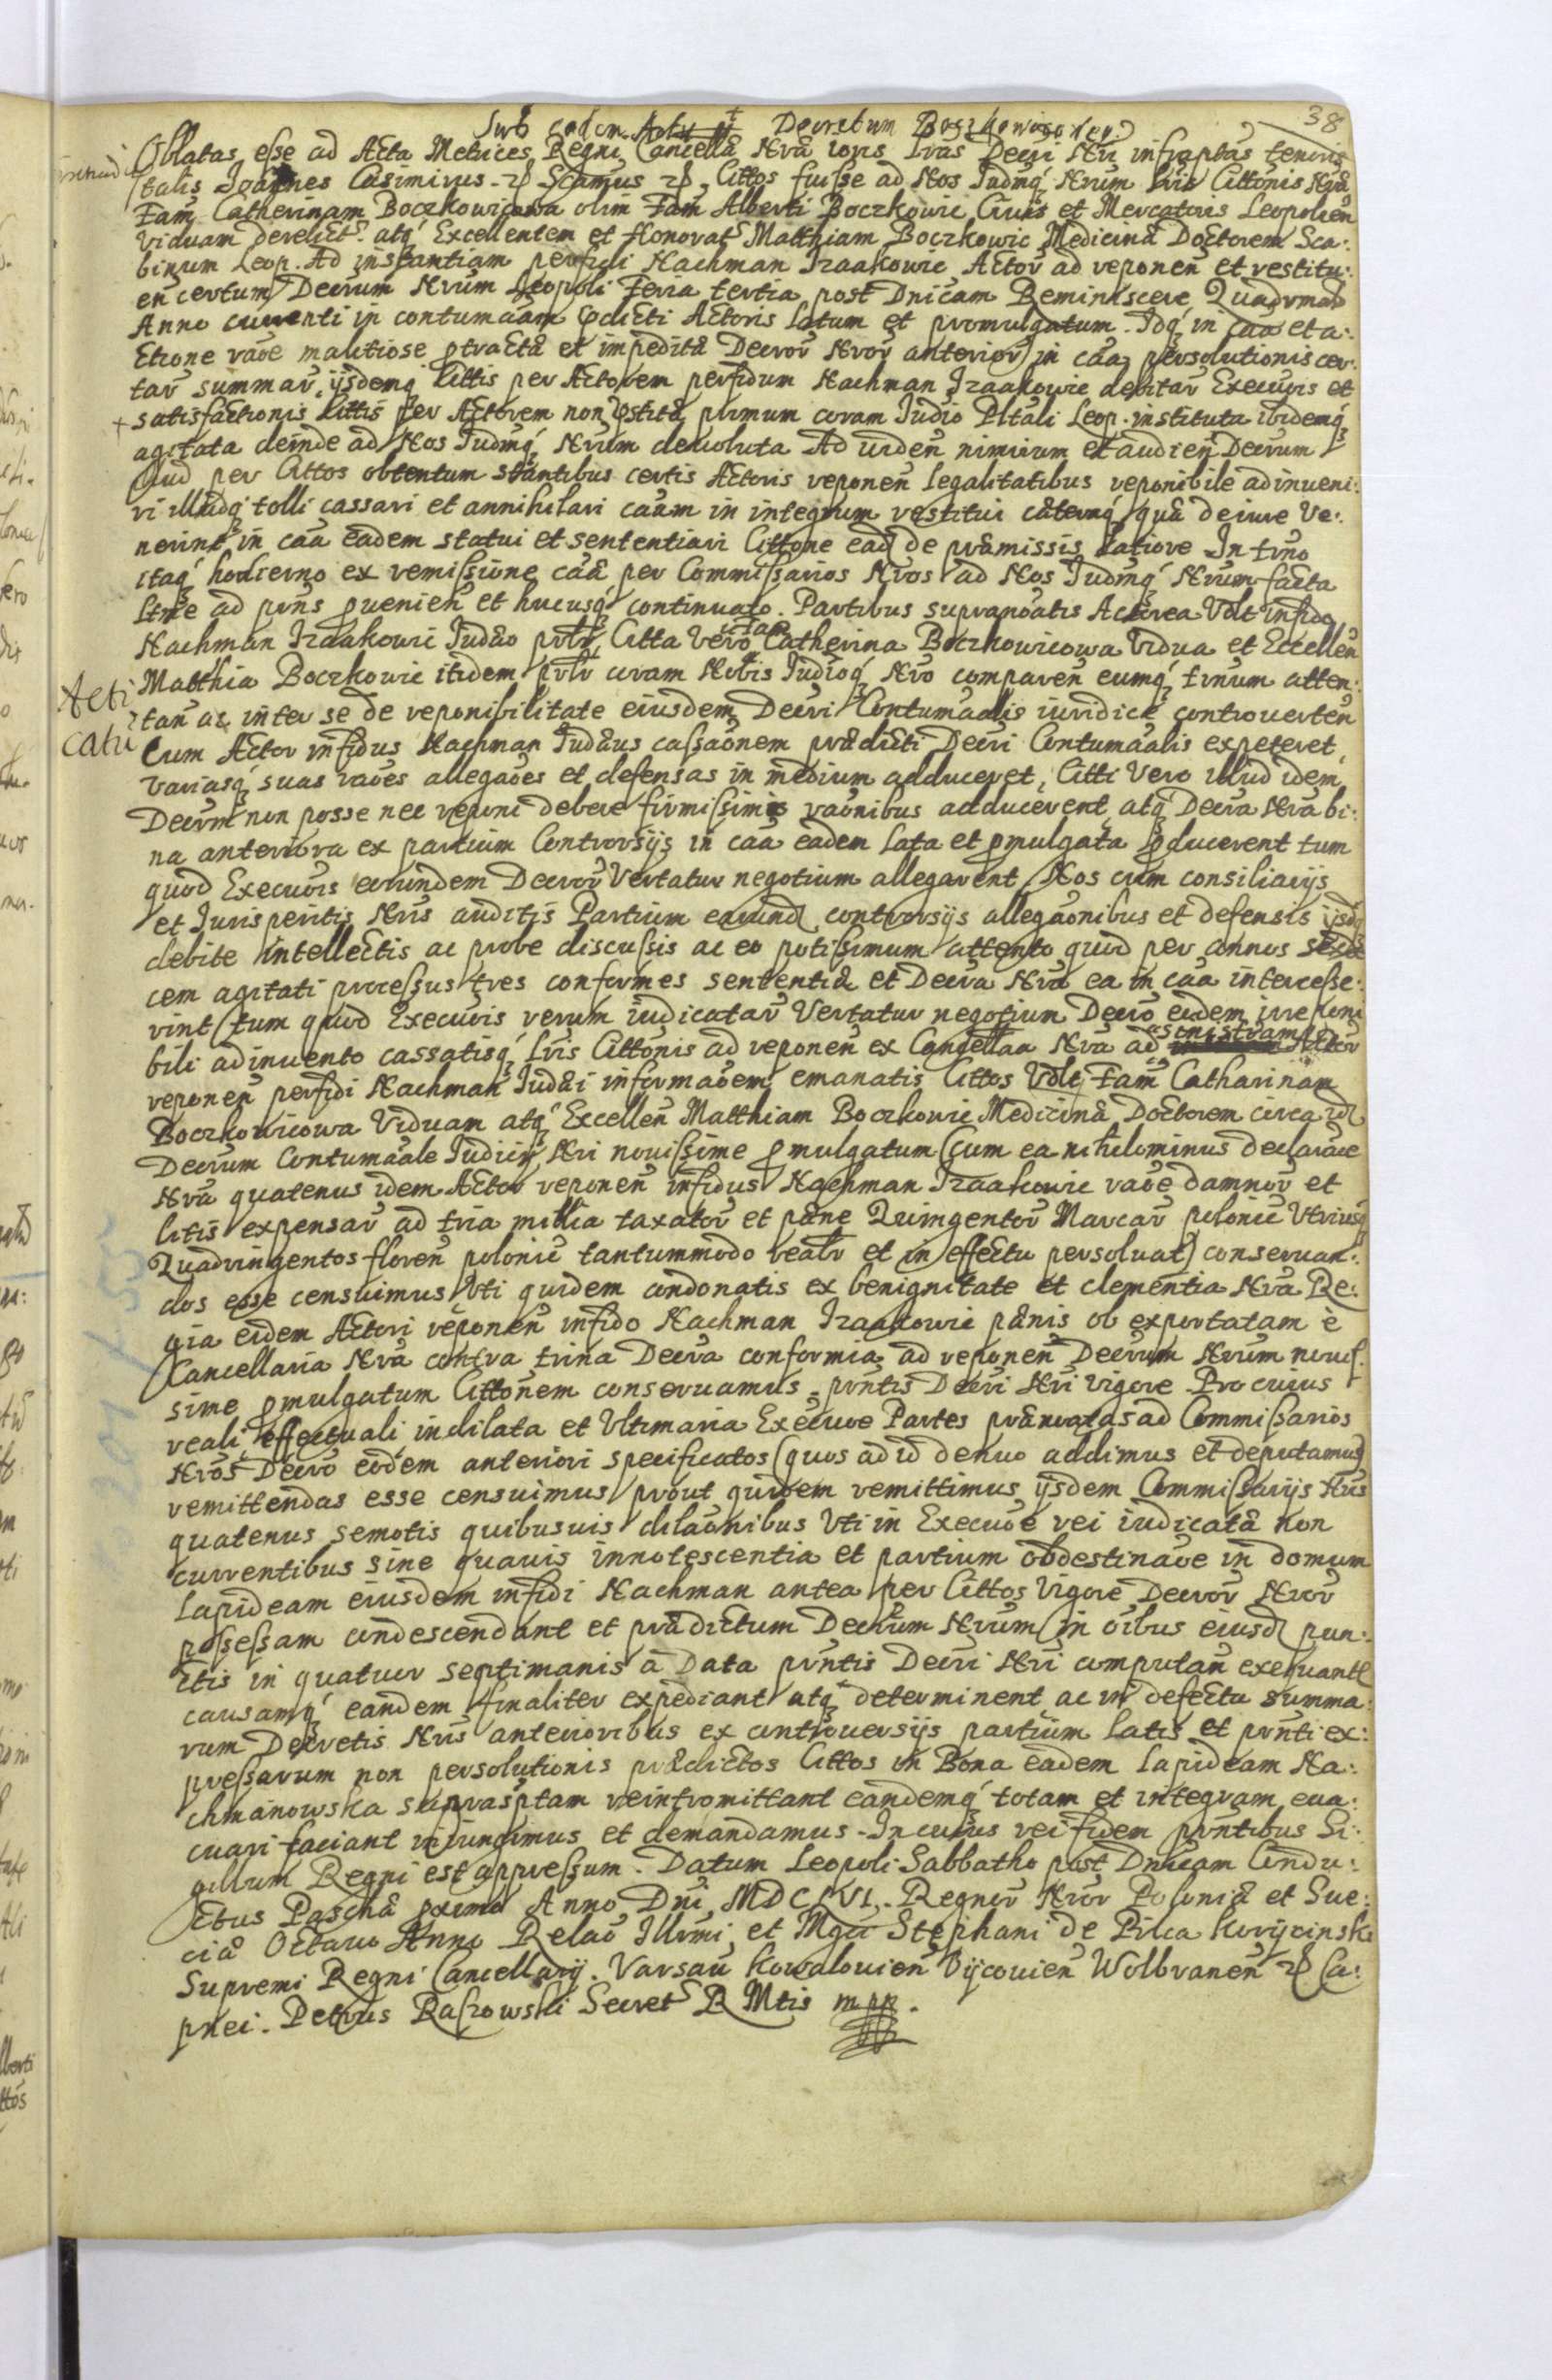 38
Sub eodem Actu Decretum Boczkowicowey
Oblatas esse ad Acta Metrices Regni Cancellã Nrã Lras Decri Nri infraptas tenoris
talis Joannes Casimirus Scimus Cittos fuisse ad Nos Iudmq́ Nrum Lris Cittonis Nrã
Fam̃ Catherinam Boczkowicowa olim Fam̃ Alberti Boczkowic Ciuis et Mercatoris Leopolien̄
Viduam derelict. atq́ Excellentem et Honorat Matthiam Boczkowic Medicinã Doctorem Sca:
binum Leop. Ad instantiam perfidi Nachman Izaakowic Actor̃ ad reponen̄ et restitu:
en̄ certum Decrum Nrum Leopoli Feria tertia post Dnicam Reminiscere Quadrmal
Anno currenti in contumaam Actoris Latum et promulgatum. Idq́ in caa et a:
ctione raõe malitiose ptractã et impeditã Decror̃ Nror̃ anterior̃ in caa persolutionis cer:
tar̃ summar̃ ijsdemq́ Cittis per Actorem perfidum Nachman Izaakowic debitar̃ Execuõis et
+ satisfactionis Cittis per Actorem non pstitã primum coram Iudio Pltali Leop. instituta ibidemq́
agitata deinde ad Nos Iudmq́ Nrum deuoluta Ad uiden̄ nimirum et audien̄ Decrum
illud per Cittos obtentum stantibus certis Actoris reponen̄ legalitatibus reponibile adinueni:
ri illudq́ tolli cassari et annihilari caam in integrum restitui cãteraq́ quã de iure Ve:
nerint in caa eadem statui et sententiari Cittone ead de prãmissis latiore In trno
itaq́ hodierno ex remissione caã per Commissarios Nros ad Nos Iudmq́ Nrum facta
ltme ad prñs puenien̄ et hucusq́ continuato. Partibus supranoatis Actorea Vdlt infido
Nachman Izaakowic Iudão prlr̃, Citta Vero Catherina Boczkowicowa Vidua et Excellen̄
Matthia Boczkowic itidem prlr̃ coram Nobis Iudioq́ Nro comparen̄ eumq́ trnum atten:
Acti
catu
tan̄ ac inter se de reponibilitate eiusdem Decri Contumaalis iuridicẽ controuerten̄
Cum Actor infidus Nachman Iudãus cassaõnem prãdicti Decri Contumaalis expeteret,
Variasq́ suas raões allegaões et defensas in medium adduceret, Citti Vero illud idem
Decrm̃ non posse nec reponi debere firmissimis raõnibus adducerent atq́ Decra Nra bi:
na anteriora ex partium Controrsijs in caa eadem Lata et pmulgata pducerent tum
quod Execuõis eorundem Decror̃ Vertatur negotium allegarent Nos cum consiliarijs
et Iurisperitis Nris auditis Partium earund controrsijs allegaõnibus et defensis ijsdq́
debite intellectis ac probe discussis ac eo potissimum attento quod per annos sede
cem agitati processus tres conformes sententiã et Decra Nra ea in caa intercesse:
rint tum quod Execuõis rerum iudicatar̃ Vertatur negotium Decro eodem irreponi
bili adinuento cassatisq́ Lris Cittonis ad reponen̄ ex Cancellaa Nra ad sinistram Actor
reponen̄ perfidi Nachman Iudãi informaõem emanatis Cittos Vdlt Fam̃ Catharinam
Boczkowicowa Viduam atq́ Excellen̄ Matthiam Boczkowic Medicinã Doctorem circa id
Decrum Contumaale Iudicij Nri nouissime pmulgatum (cum ea nihilominus declaraõe
Nra quatenus idem Actor reponen̄ infidus Nachman Izaakowic raõe damnor̃ et
litis expensar̃ ad tria millia taxator̃ et pãne Quingentor̃ Marcar̃ polonic̃ Vtriusq́
Quadringentos floren̄ polonic̃ tantummodo realr̃ et in effectu persoluat) conseruan:
dos esse censuimus Vti quidem condonatis ex benignitate et clementia Nra Re:
gia eidem Actori reponen̄ infido Nachman Izaakowic pãnis ob exportatam è
Cancellaria Nra contra trina Decra conformia ad reponen̄ Decrum Nrum nouis.
sime pmulgatum Cittonem conseruamus prñtis Decri Nri Vigore Pro cuius
reali effectuali indilata et Vltimaria Execuõe Partes prãnoatas ad Commissarios
Nros Decro eodem anteriori specificatos (quos ad id denuo addimus et deputamus)
remittendas esse censuimus prout quidem remittimus ijsdem Commissarijs Nris
quatenus semotis quibusuis dilaõnibus Vti in Execuõe rei iudicatã non
currentibus sine quauis innotescentia et partium obdestinaõe in domum
lapideam eiusdem infidi Nachman antea per Cittos Vigore Decror̃ Nror̃
possessam condescendant et prãdictum Decrum Nrum in oibus eiusd pun:
ctis in quatuor septimanis a Data prñtis Decri Nri computan̄ exequantr
causamq́ eandem finaliter expediant atq́ determinent ac in defectu summa:
rum Decretis Nris anterioribus ex controuersijs partium latis et prñti ex:
pressarum non persolutionis prãdictos Cittos in Bona eadem lapideam Na:
chmanowska suprasptam reintromittant eandemq́ totam et integram eua:
cuari faciant iniungimus et demandamus. In cuius rei fidem prñtibus Si:
gillum Regni est appressum. Datum Leopoli Sabbatho post Dnicam Condu:
ctus Paschã pxima Anno Dni MDCLVI. Regnor̃ Nror̃ Poloniã et Sue:
ciã Octauo Anno Relaõ Illrmi et Mgci Stephani de Pilca Koryciński
Supremi Regni Cancellarij. Varsau Kowalouien̄ Oycouien̄ Wolbranen̄ Ca:
pnei. Petrus Raszowski Secret R Mtis mpp.